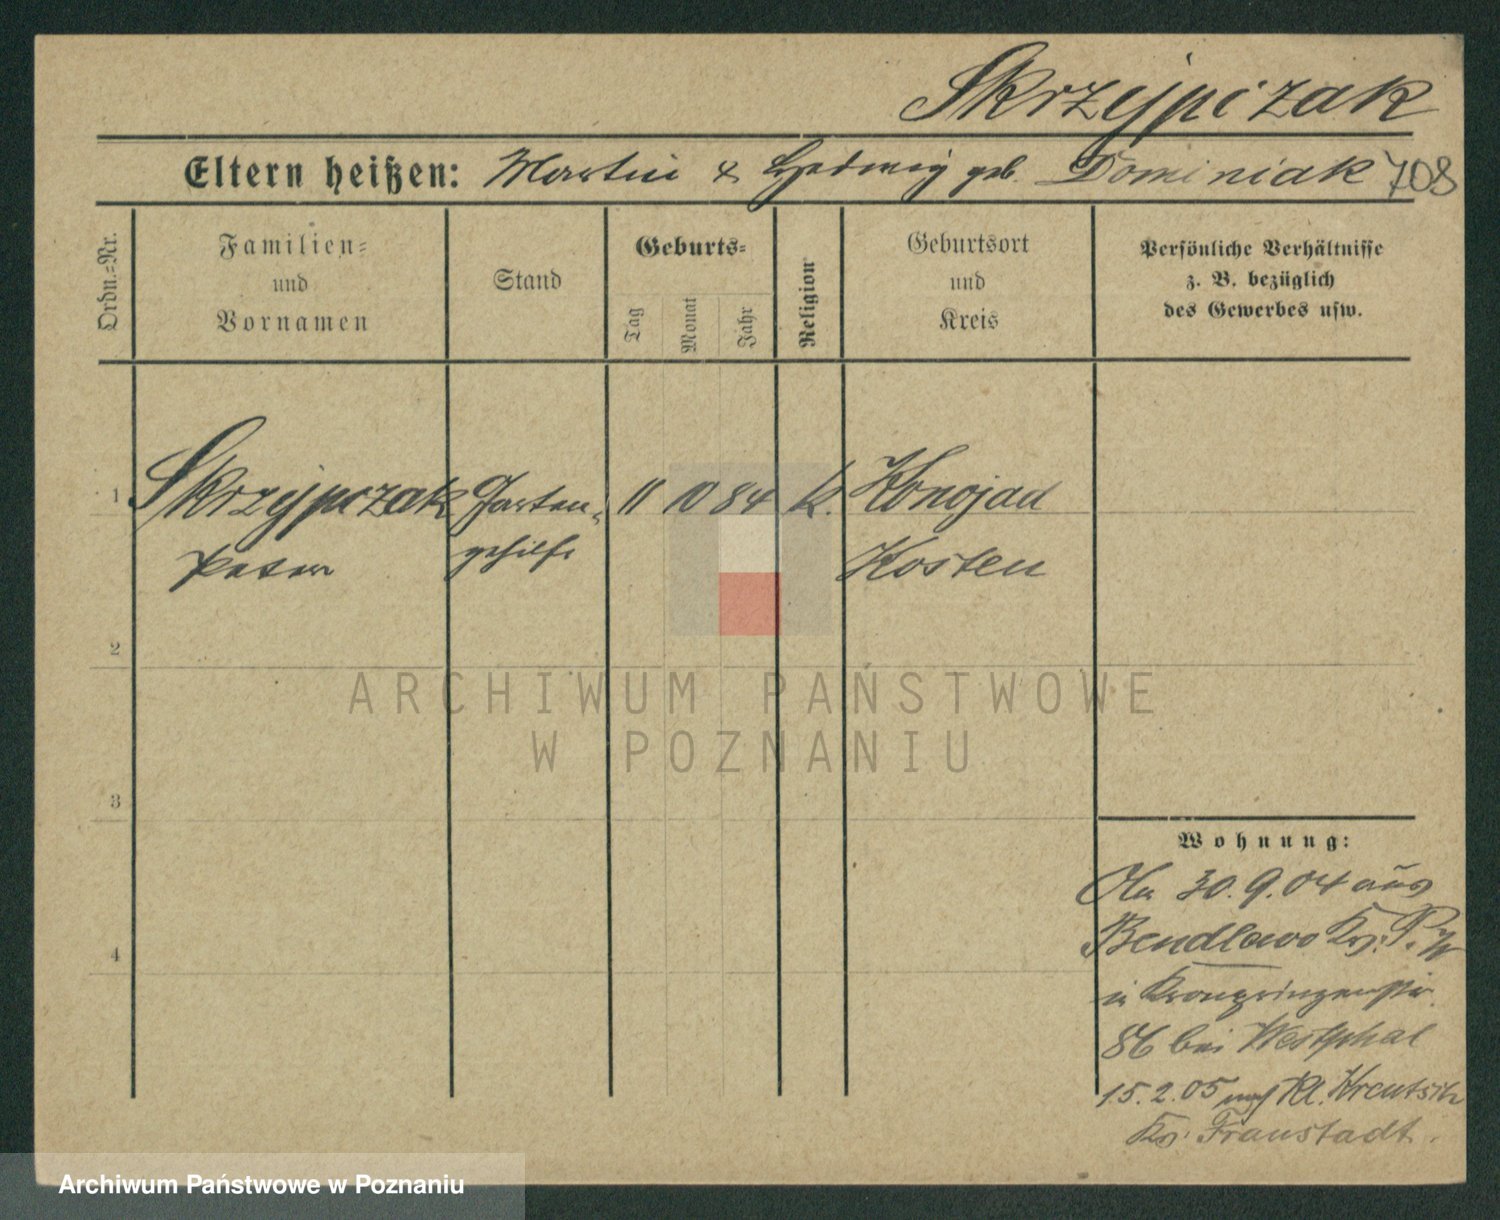 Skrzypczak
Eltern heißen: Martin & Hedwig geb. Dominiak 708
Ordn.=Nr.
Familien=
und
Vornamen
Stand
Geburts=
Tag
Monat
Jahr
Religion
Geburtsort
und
Kreis
Persönliche Verhältnisse
z. B. bezüglich
des Gewerbes usw.
1 Skrzypczak Garten- 11 10 84 k. Konojad
Peter gehilfe Kosten
2
ARCHIWUM PAŃSTWOWE
W POZNANIU
3
Wohnung:
30.9.04 aus
Bendlewo Kr. P. W
in Kronprinzenstr.
86 bei Westphal
4
15.2.05 nach Kl. Kreutsch
Kr. Fraustadt.
Archiwum Państwowe w Poznaniu